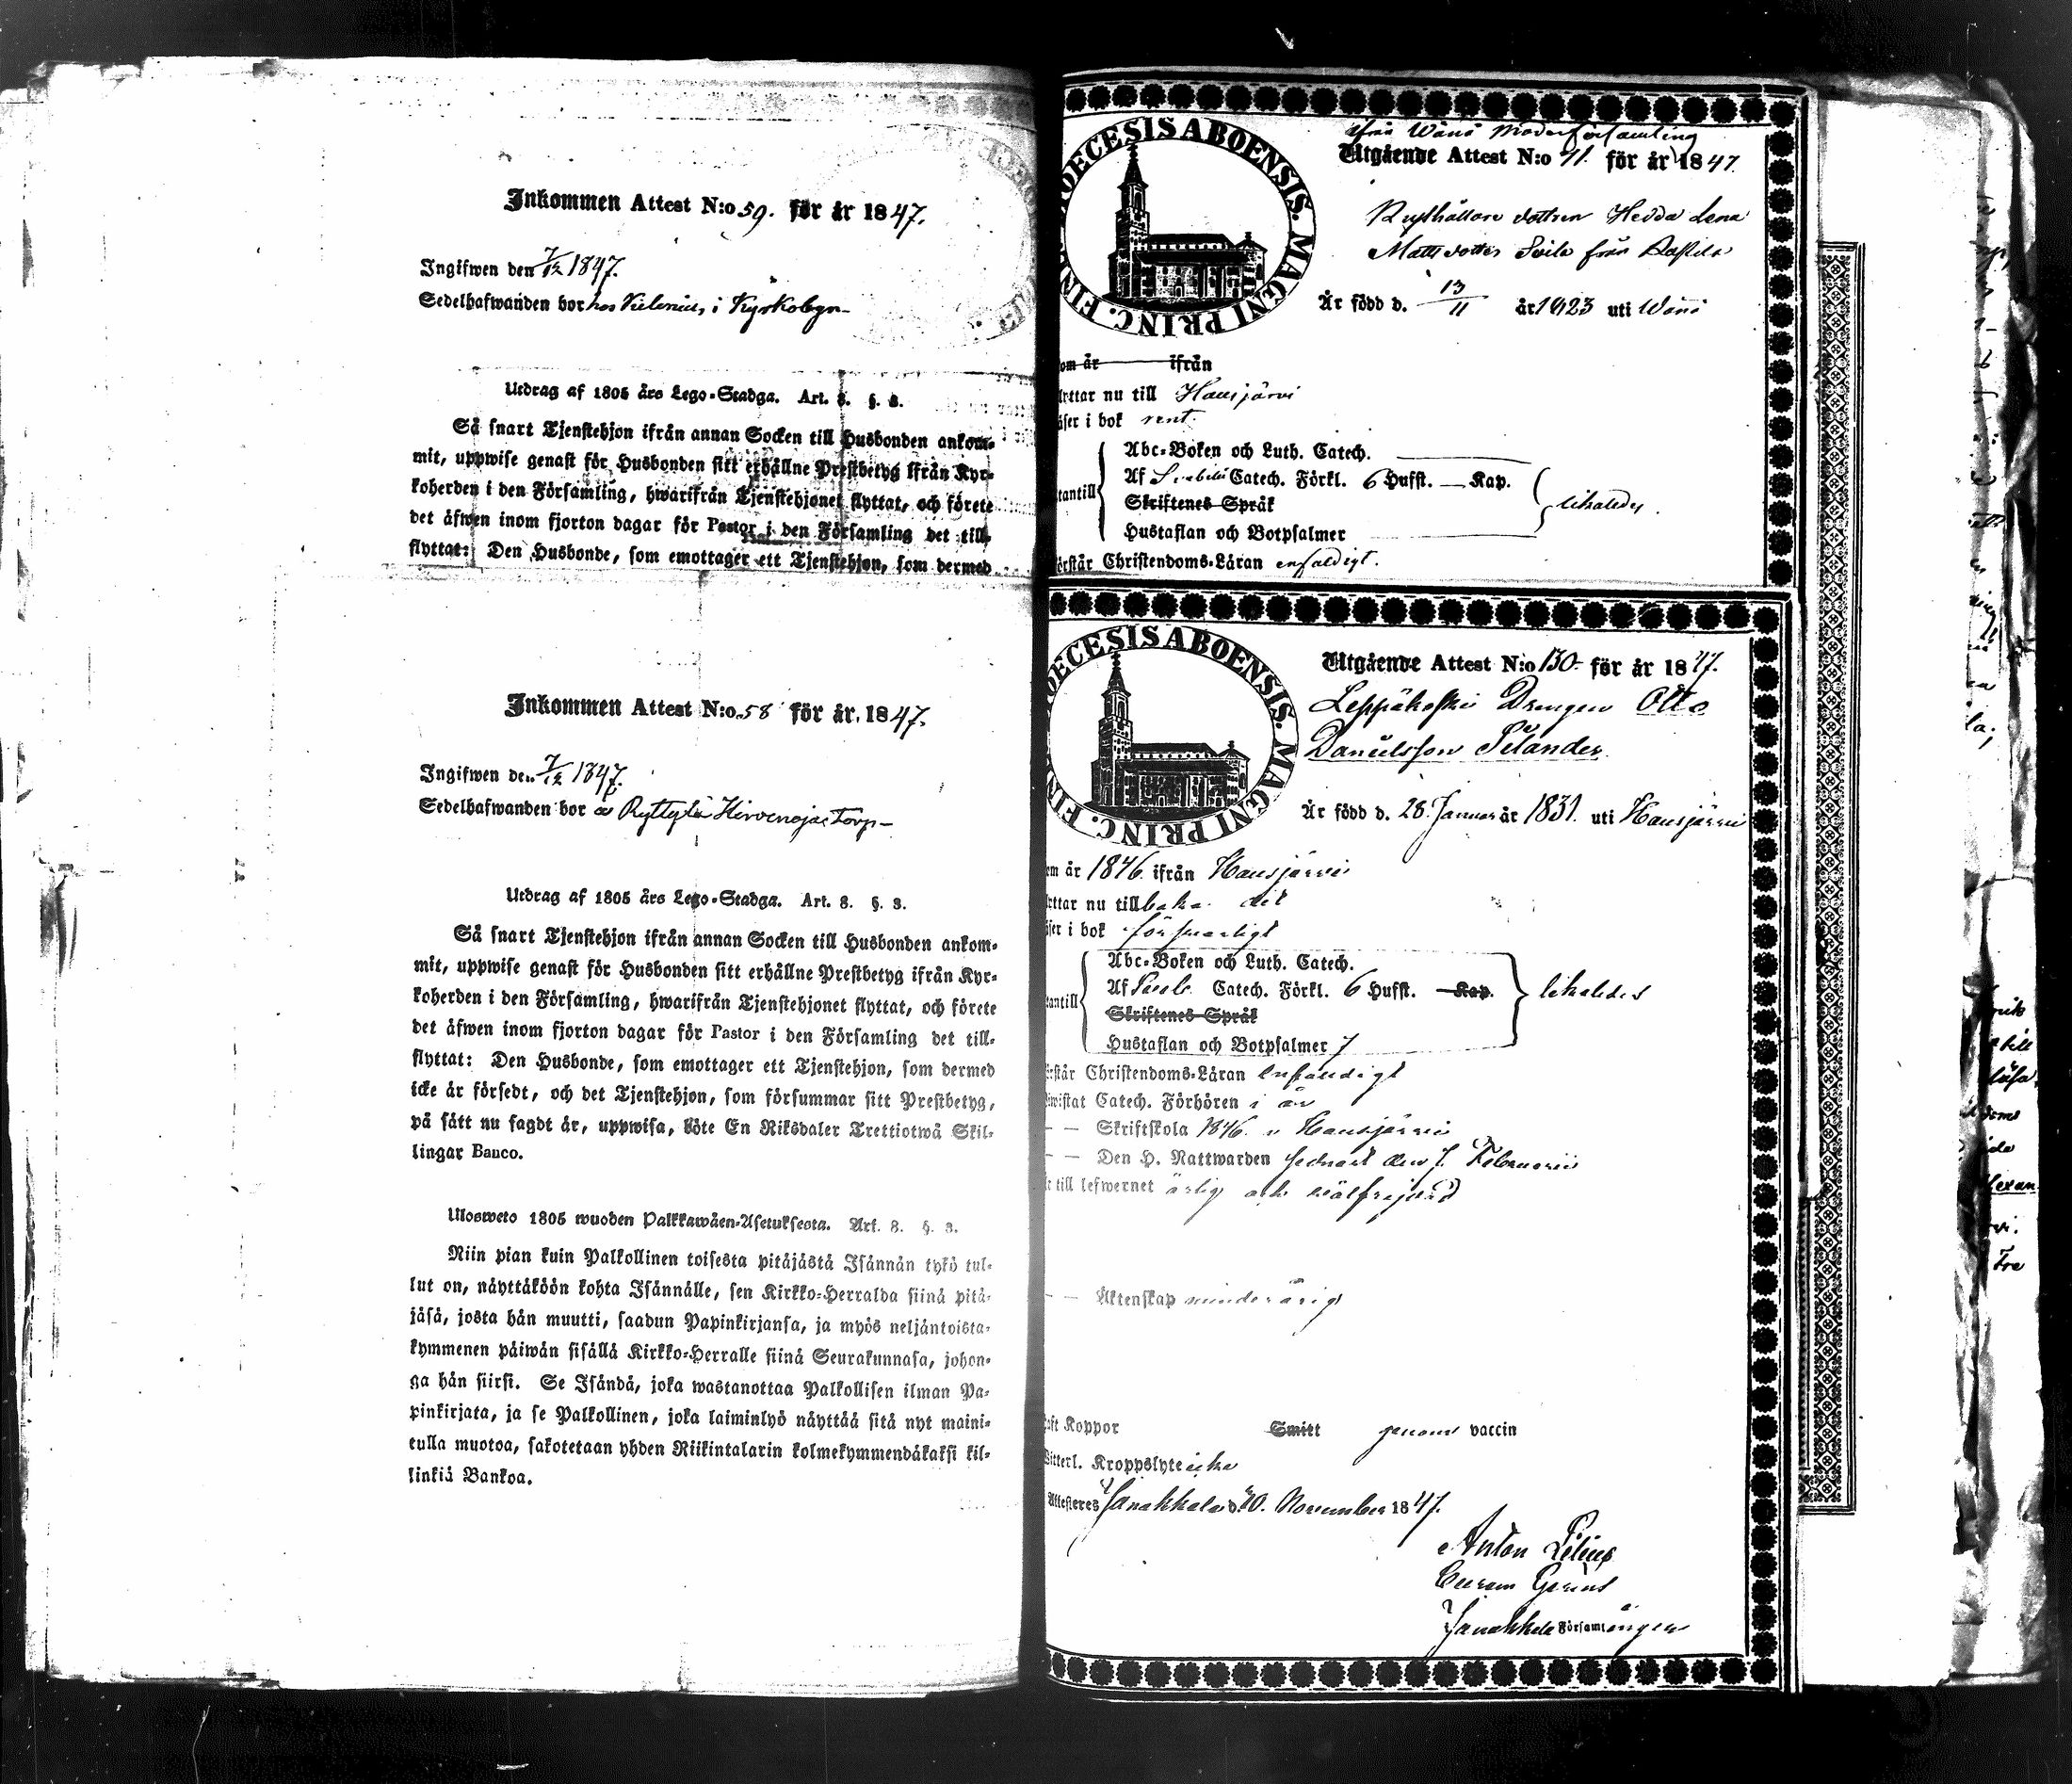 Inkommen Attest N:o 59. för år 1847.
Ingifwen den 7/12 1847.
Sedelhafwanden bor hos i Kyrkobyn
Utdrag af 1805 års Lego-Stadga. Art. 8. §. 8.
Så snart Tjenstehjon ifrån annan Socken till Husbonden ankom-
mit, uppwise genast för Husbonden sitt erhållne Prestbetyg ifrån Kyr-
koherden i den Församling, hwarifrån Tjenstehjonet flyttat, och förete
det äfwen inom fjorton dagar för Pastor i den Församling det till-
flyttat: Den Husbonde, som emottager ett Tjenstehjon, som dermed
Inkommen Attest N:o 58 för år 1847.
Ingifwen den 7/12 1847.
Sedelhafwanden bor å Ryttylä Hirvenoja Torp
Utdrag af 1805 års Lego-Stadga. Art. 8. §. 8.
Så snart Tjenstehjon ifrån annan Socken till Husbonden ankom-
mit, uppwise genast för Husbonden sitt erhållne Prestbetyg ifrån Kyr-
koherden i den Församling, hwarifrån Tjenstehjonet flyttat, och förete
det äfwen inom fjorton dagar för Pastor i den Församling det till-
flyttat: Den Husbonde, som emottager ett Tjenstehjon, som dermed
icke är försedt, och det Tjenstehjon, som försummar sitt Prestbetyg,
på sätt nu sagdt är, uppwisa, böte En Riksdaler Trettiotwå Skil-
lingar Banco.
Ulosweto 1805 wuoden Palkkawäen-Asetuksesta. Art. 8. §. 8.
Niin pian kuin Palkollinen toisesta pitäjästä Isännän tykö tul-
lut on, näyttäköön kohta Isännälle, sen Kirkko-Herralda siinä pitä-
jäsä, josta hän muutti, saadun Papinkirjansa, ja myös neljäntoista-
kymmenen päiwän sisällä Kirkko-Herralle siinä Seurakunnasa, johon-
ga hän siirsi. Se Isändä, joka wastanottaa Palkollisen ilman Pa-
pinkirjata, ja se Palkollinen, joka laiminlyö näyttää sitä nyt maini-
tulla muotoa, sakotetaan yhden Riikintalarin kolmekymmendäkaksi kil-
linkiä Bankoa.
DIOECESIS ABOENSIS. MAGNI PRINC. FIN
ifrån Wånå Moderförsamling
Utgående Attest N:o 71. för år 1847.
Rusthållare dottren Hedda Lena
Matts dotter från
Är född d. 13/11 år 1823 uti Wånå
om är ifrån
lyttar nu till Hausjärvi
äser i bok rent.
Abc-Boken och Luth. Catech.
Af Svebelii Catech. Förkl. 6 Hufst. Kap.
Skriftenes Språk
tantill
likaledes.
Hustaflan och Botpsalmer
örstår Christendoms-Läran enfaldigt.
DIOECESIS ABOENSIS. MAGNI PRINC. FIN
Utgående Attest N:o 130 för år 1847.
Leppäkoski Drengen Otto
Danielsson Selander.
Är född d. 28 Januar år 1831. uti Hausjärvi
om är 1846 ifrån Hausjärvi
lyttar nu tillbaka dit
äser i bok försvarligt
Abc-Boken och Luth. Catech.
Af Sveb. Catech. Förkl. 6 Hufst. Kap.
tantill
likaledes
Skriftenes Språk
Hustaflan och Botpsalmer 7
örstår Christendoms-Läran enfaldigt
iwistat Catech. Förhören i år
— — Skriftskola 1846. i Hausjärvi
— — Den H. Nattwarden sednast den 7. Februarii
t till lefwernet ärlig och välfrejdad
— — Äktenskap minderårig
aft Koppor Smitt genom vaccin
Witterl. Kroppslyte icke
Attesteres Janakkala d. 10. November 1847.
Anton
Janakkala Församlingen